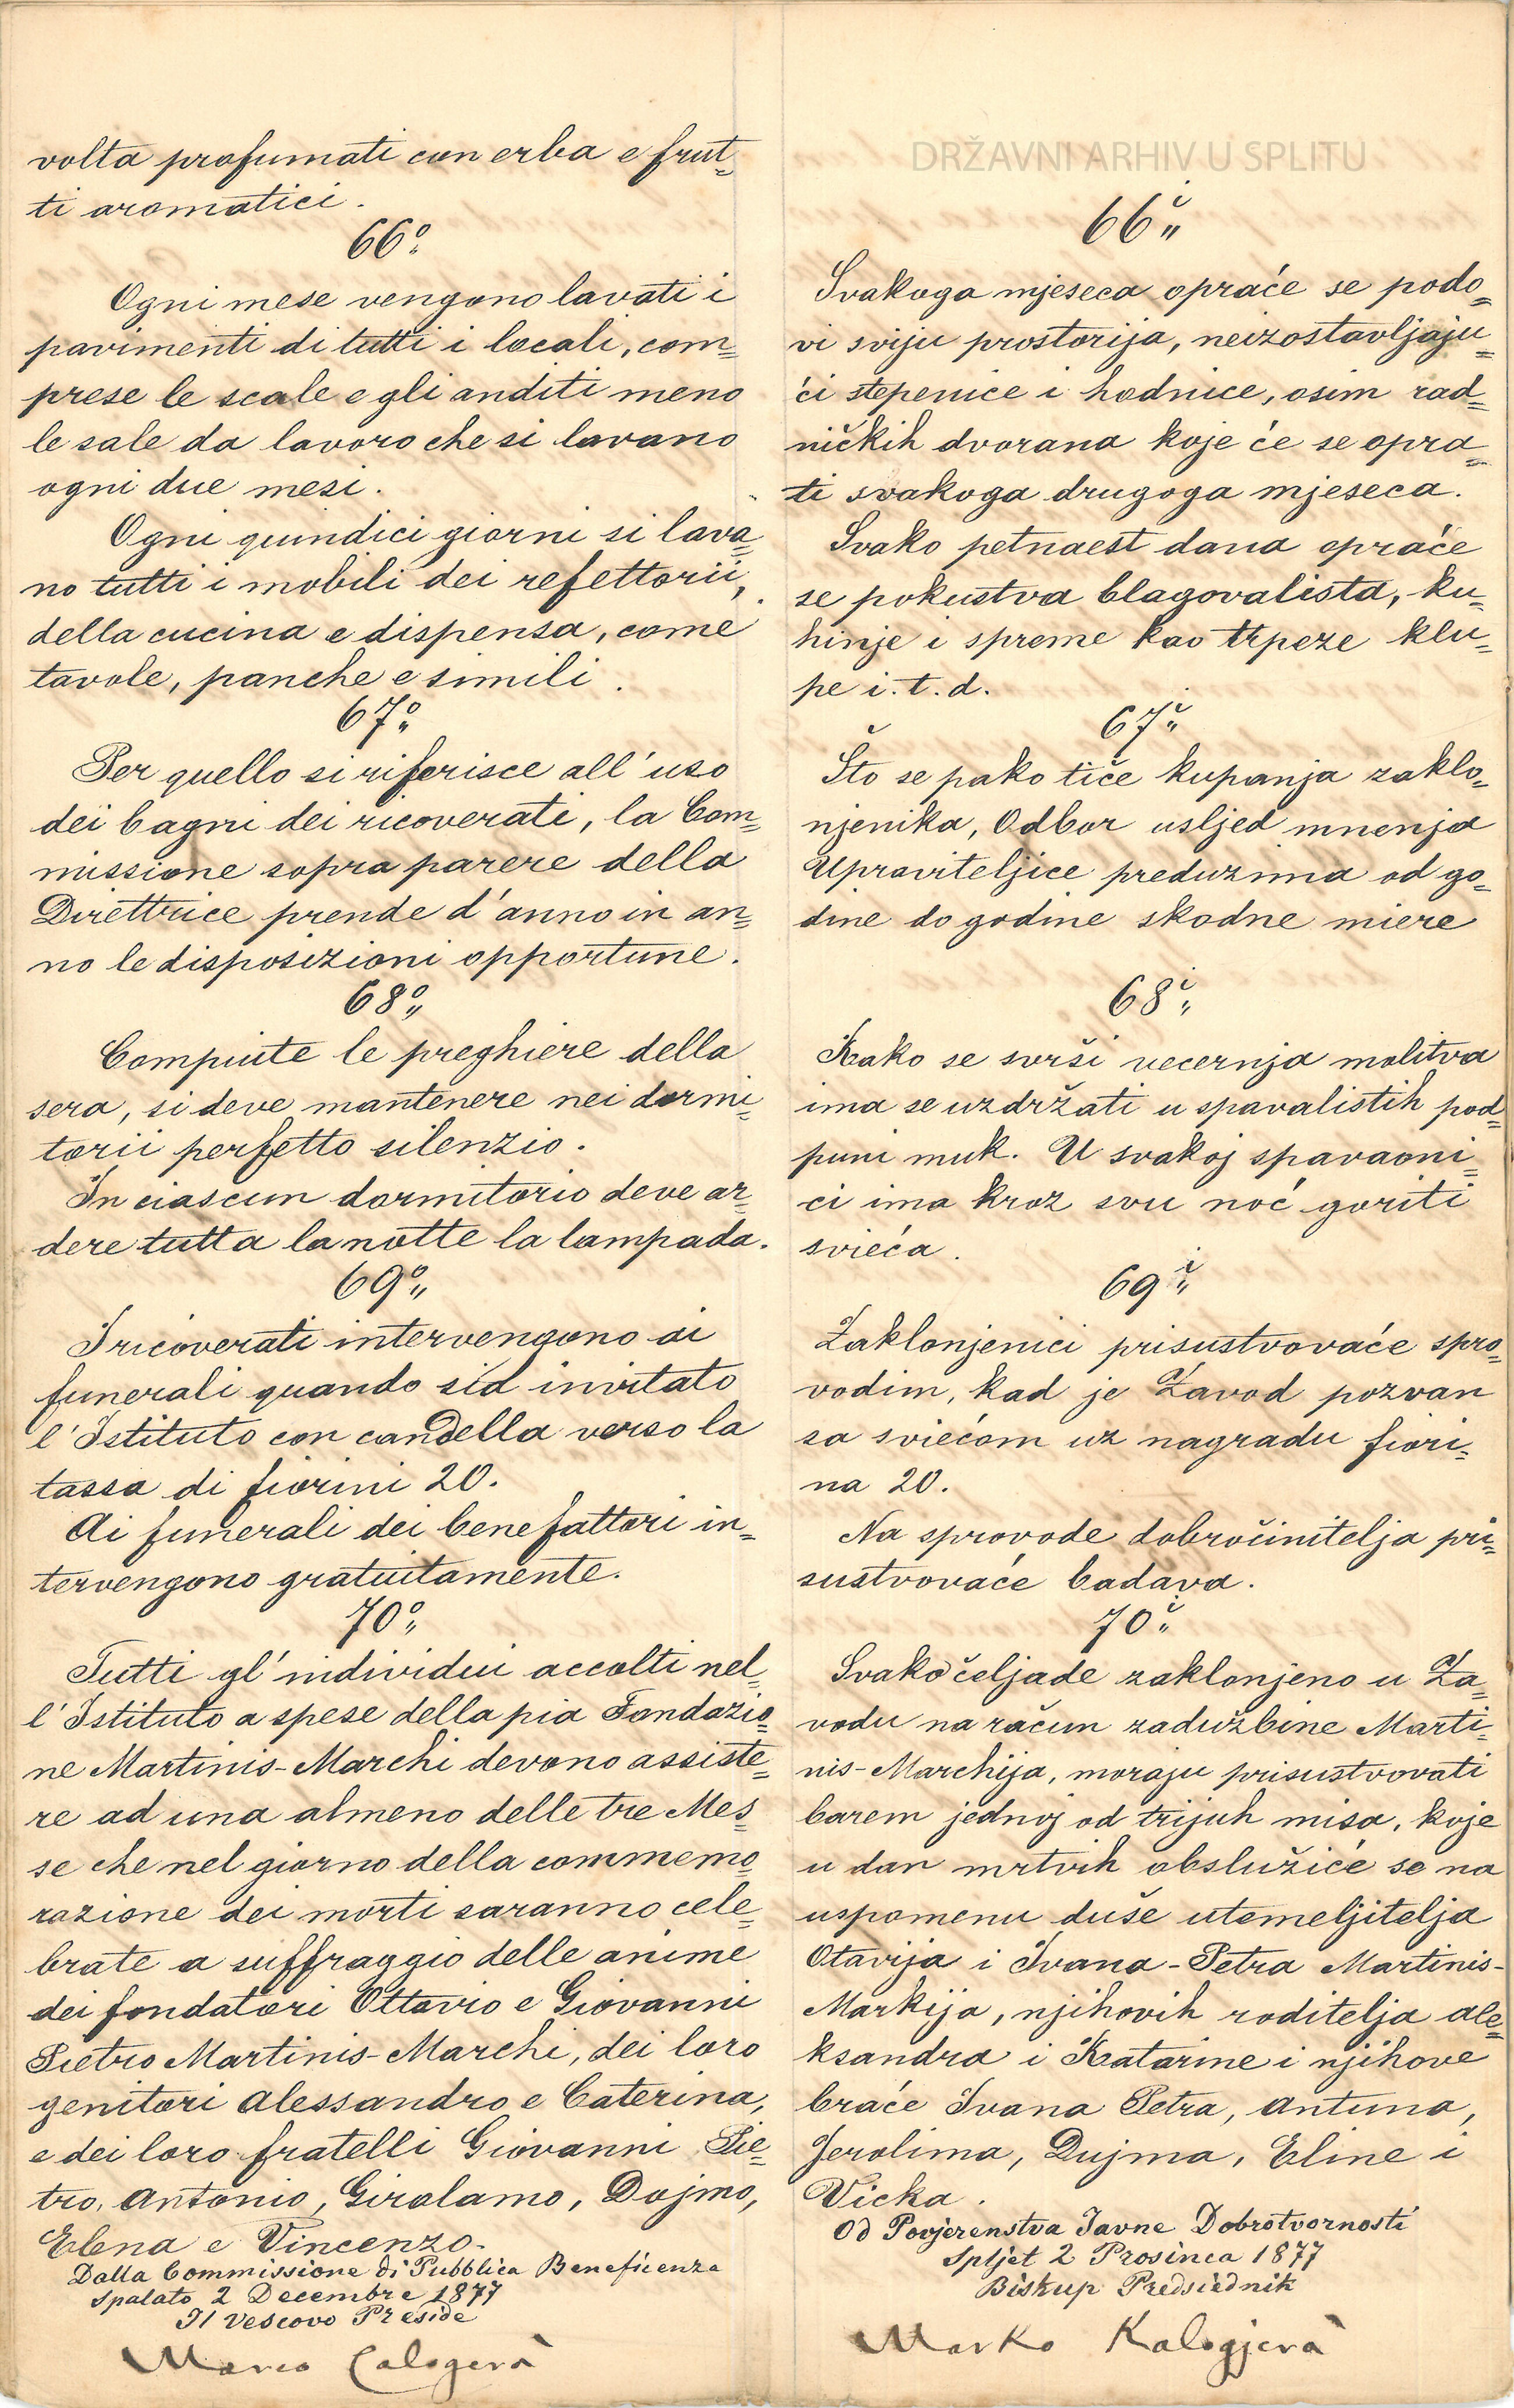 volta profumati con erba e frut=
ti aromatici.
66º
Ogni mese vengono lavati i
pavimenti di tutti i locali, com=
prese le scale e gli anditi meno
le sale da lavoro che si lavano
ogni due mesi.
Ogni quindici giorni si lava=
no tutti i mobili dei refettorii,
della cucina e dispensa, come
tavole, panche e simili.
67º
Per quello si riferisce all'uso
dei bagni dei ricoverati, la Com=
missione sopra parere della
Direttrice prende d'anno in an=
no le disposizioni opportune.
68º
Compiute le preghiere della
sera, si deve mantenere nei dormi=
torii perfetto silenzio.
In ciascun dormitorio deve ar=
dere tutta la notte la lampada.
69º
I ricoverati intervengono ai
funerali quando sia invitato
l'Istituto con candella verso la
tassa di fiorini 20.
Ai funerali dei benefattori in=
tervengono gratuitamente.
70º
Tutti gl'individui accolti nel=
l'Istituto a spese della pia Fondazio=
ne Martinis-Marchi devono assiste=
re ad una almeno delle tre Mes=
se che nel giorno della commemo=
razione dei morti saranno cele=
brate a suffraggio delle anime
dei fondatori Ottavio e Giovanni
Pietro Martinis-Marchi, dei loro
genitori Alessandro e Caterina,
e dei loro fratelli Giovanni Pie=
tro, Antonio, Girolamo, Dojmo,
Elena e Vincenzo.
Dalla Commissione di Pubblica Beneficenza
Spalato 2 Decembre 1877
Il Vescovo Preside
Marco Calogerà
DRŽAVNI ARHIV U SPLITU
66i
Svakoga mjeseca opraće se podo=
vi sviju prostorija, neizostavljaju=
ći stepenice i hodnice, osim rad=
ničkih dvorana koje će se opra=
ti svakoga drugoga mjeseca.
Svako petnaest dana opraće
se pokustva blagovalista, ku=
hinje i spreme kao trpeze klu=
pe i.t.d.
67i
Što se pako tiče kupanja zaklo=
njenika, Odbor usljed mnenja
Upraviteljice preduzima od go=
dine do godine skodne miere
68i
Kako se svrši vecernja molitva
ima se uzdržati u spavalistih pod=
puni muk. U svakoj spavaoni=
ci ima kroz svu noć goriti
svieća.
69i
Zaklonjenici prisustvovaće spro=
vodim, kad je Zavod pozvan
sa sviećom uz nagradu fiori=
na 20.
Na sprovode dobročinitelja pri=
sustvovaće badava.
70i
Svako čeljade zaklonjeno u Za=
vodu na račun zadužbine Marti=
nis-Marchija, moraju prisustvovati
barem jednoj od trijuh misa, koje
u dan mrtvih obslužiće se na
uspomenu duše utemeljitelja
Otavija i Ivana-Petra Martinis-
Markija, njihovih roditelja Ale=
ksandra i Katarine i njihove
braće Ivana Petra, Antuna,
Jerolima, Dujma, Eline i
Vicka.
Od Povjerenstva Javne Dobrotvornosti
Spljet 2 Prosinca 1877
Biskup Predsiednik
Marko Kalogjerà